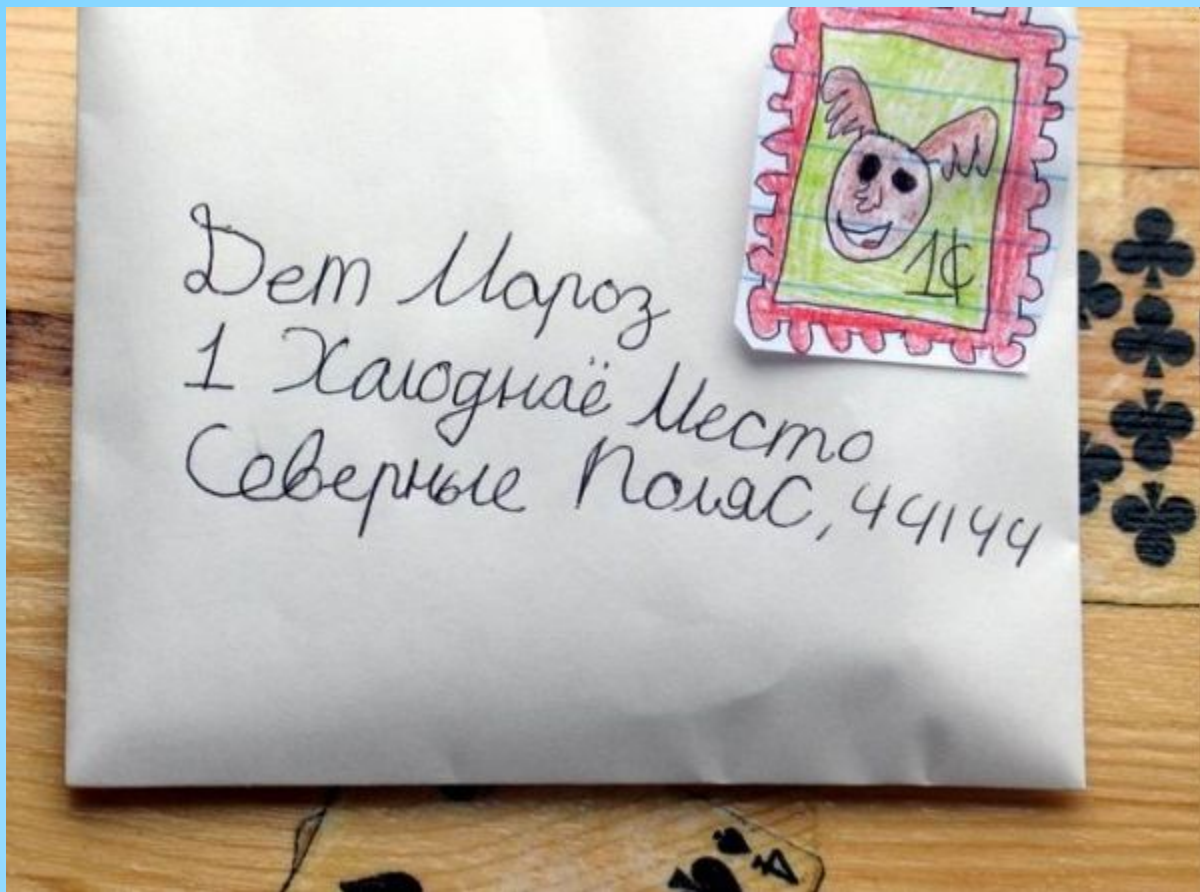 Дет Мароз
1 Халоднаё Место
Северные ПоляС, 44144
1¢
4